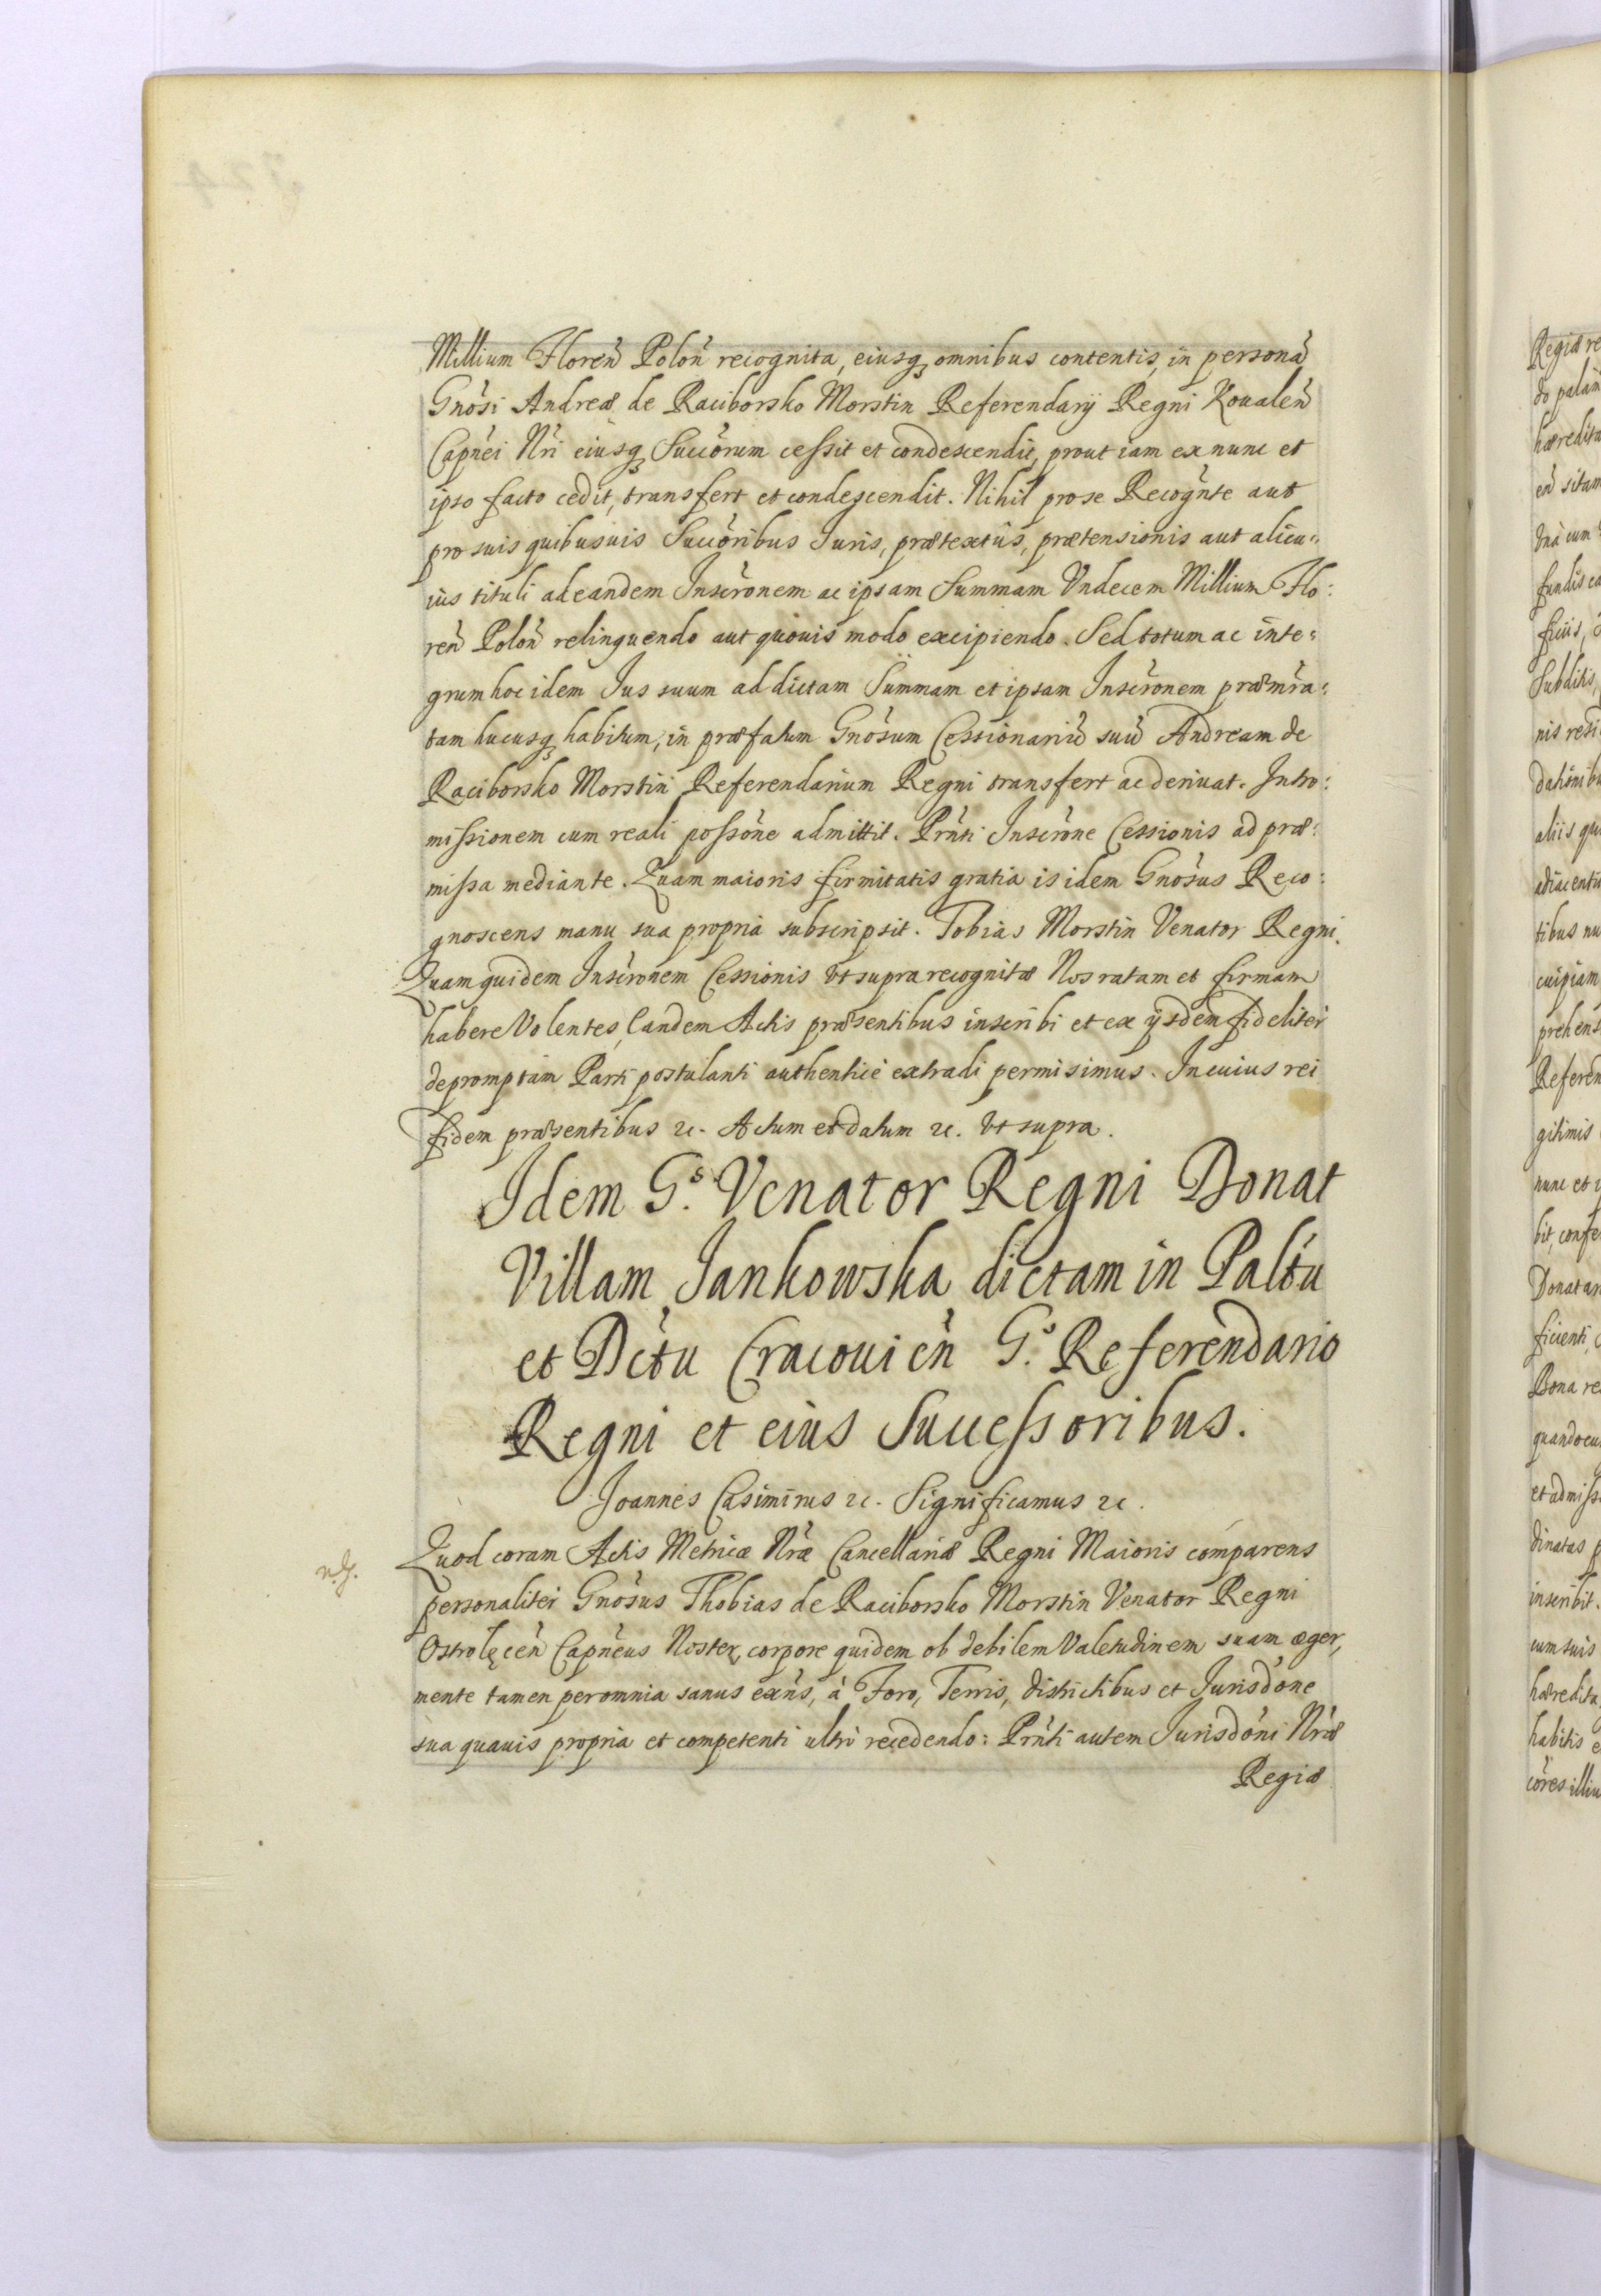 Millium Floren̄ Polon̄ recognita, eiusq; omnibus contentis, in personā
Gnōsi Andreæ de Raciborsko Morstin Referendarÿ Regni Koualen̄
Capn̄ei Nr̄i eiusq; Succōrum cessit et condescendit, prout iam ex nunc et
ipso facto cedit, transfert et condescendit. Nihil pro se Recogn̄te aut
pro suis quibusuis Succōribus Juris, prætextûs, prætensionis aut alicu=
ius tituli ad eandem Inscr̄onem ac ipsam Summam Vndecem Millium Flo:
ren̄ Polon̄ relinquendo aut quouis modo excipiendo. Sed totum ac inte=
grum hoc idem Jus suum ad dictam Summam et ipsam Inscr̄onem præmr̄a=
tam hucusq; habitum, in præfatum Gnōsum Cessionariū suū Andream de
Raciborsko Morstin Referendarium Regni transfert ac deriuat. Intro:
missionem cum reali possōne admittit. Prn̄ti Inscr̄one Cessionis ad præ:
missa mediante. Quam maioris firmitatis gratia is idem Gnōsus Reco:
gnoscens manu sua propria subscripsit. Tobias Morstin Venator Regni.
Quam quidem Inscr̄onem Cessionis vt supra recognitæ Nos ratam et firmam
habere Volentes, Eandem Actis præsentibus inscribi et ex ÿsdem fideliter
depromptam Parti postulanti authenticè extradi permisimus. In cuius rei
fidem præsentibus &c. Actum et datum &c. vt supra.
Idem G.s Venator Regni Donat
Villam Jankowska dictam in Paltū
et Dc̄tu Cracouien̄ G.s Referendario
Regni et eius Successoribus.
Joannes Casimirus &c. Significamus &c.
Quod coram Actis Metricæ Nr̄æ Cancellariæ Regni Maioris comparens
personaliter Gnōsus Thobias de Raciborsko Morstin Venator Regni
Ostrolęcen̄ Capn̄eus Noster, corpore quidem ob debilem Valetudinem suam æger,
mente tamen per omnia sanus exn̄s, à Foro, Terris, districtibus et Jurisdōne
sua quauis propria et competenti ultrò recedendo: Prn̄ti autem Jurisdōni Nr̄æ
Regiæ